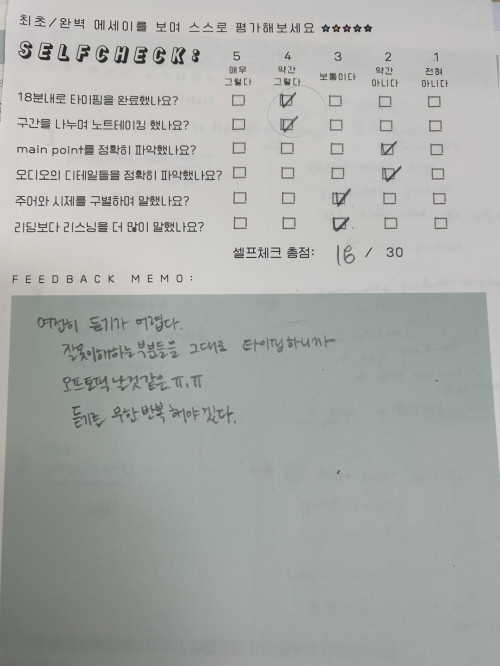 최초/완벽 에세이를 보며 스스로 평가해보세요 ★★★★★
SELFCHECK: 5 4 3 2 1
매우 그렇다 약간 그렇다 보통이다 약간 아니다 전혀 아니다
18분내로 타이핑을 완료했나요?
구간을 나누며 노트테이킹 했나요?
main point를 정확히 파악했나요?
오디오의 디테일들을 정확히 파악했나요?
주어와 시제를 구별하며 말했나요?
리딩보다 리스닝을 더 많이 말했나요?
셀프체크 총점: 18 / 30
FEEDBACK MEMO:
여전히 듣기가 어렵다.
잘못이해하는부분들을 그대로 타이핑하니까
오프토픽 날것같은 ㅠ.ㅠ
듣기를 무한반복 해야겠다.